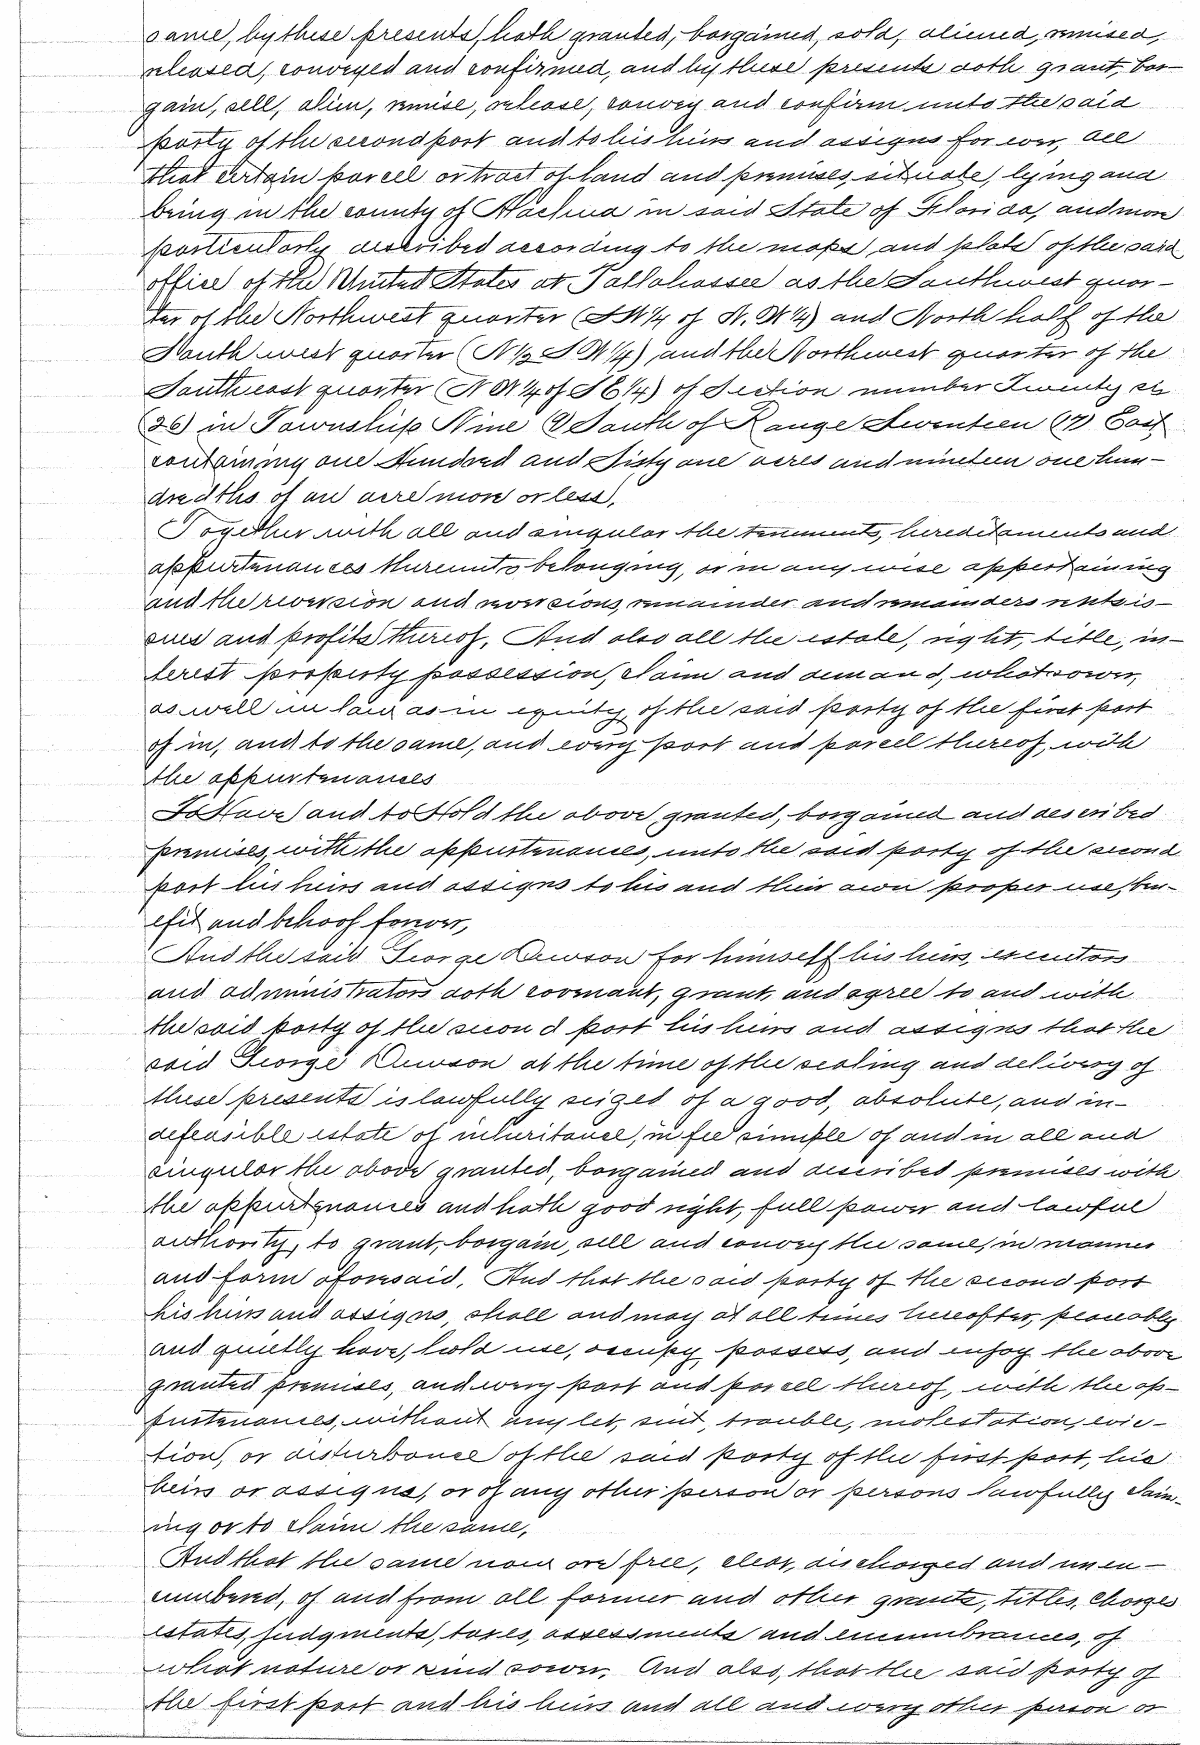 same, by these presents, hath granted, bargained, sold, aliened, remised,
released, conveyed and confirmed, and by these presents doth grant, bar-
gain, sell, alien, remise, release, convey and confirm unto the said
party of the second part and to his heirs and assigns for ever, all
that certain parcell or tract of land and premises, situate, lying and
being in the county of Alachua in said State of Florida, and more
particularly described according to the maps, and plats of the said
office of the United States at Tallahassee as the Southwest quar-
ter of the Northwest quarter (SW¼ of N.W¼) and North half of the
South west quarter (N½ SW¼) and the Northwest quarter of the
Southeast quarter (NW¼ of SE¼) of Section number Twenty six
(26) in Township Nine (9) South of Range Seventeen (17) East
containing one Hundred and Sixty one acres and nineteen one hun-
dredths of an acre more or less.
Together with all and singular the tenements, hereditaments and
appurtenances thereunto belonging, or in any wise appertaining
and the reversion and reversions, remainder and remainders rents is-
sues and profits thereof, And also all the estate, right, title, in-
terest property possession, claim and demand, whatsoever,
as well in law as in equity, of the said party of the first part
of in, and to the same, and every part and parcell thereof, with
the appurtenances
To Have and to Hold the above granted, bargained and described
premises, with the appurtenances, unto the said party of the second
part his heirs and assigns to his and their own proper use, ben-
efit and behoof forever,
And the said George Dawson for himself his heirs, executors
and administrators doth covenant, grant, and agree to and with
the said party of the second part his heirs and assigns that the
said George Dawson at the time of the sealing and delivery of
these presents is lawfully seized of a good, absolute, and in-
defeasible estate of inheritance, in fee simple of and in all and
singular the above granted, bargained and described premises with
the appurtenances and hath good right, full power and lawful
authority, to grant, bargain, sell and convey the same, in manner
and form aforesaid. And that the said party of the second part
his heirs and assigns, shall and may at all times hereafter, peaceably
and quietly have, hold use, occupy, possess, and enjoy the above
granted premises, and every part and parcell thereof, with the ap-
purtenances, without any let, suit, trouble, molestation, evic-
tion, or disturbance of the said party of the first part, his
heirs or assigns, or of any other person or persons lawfully claim-
ing or to claim the same,
And that the same now are free, clear, discharged and unen-
cumbered, of and from all former and other grants, titles, charges
estates, judgments, taxes, assessments and encumbrances, of
what nature or kind soever, And also, that the said party of
the first part and his heirs and all and every other person or